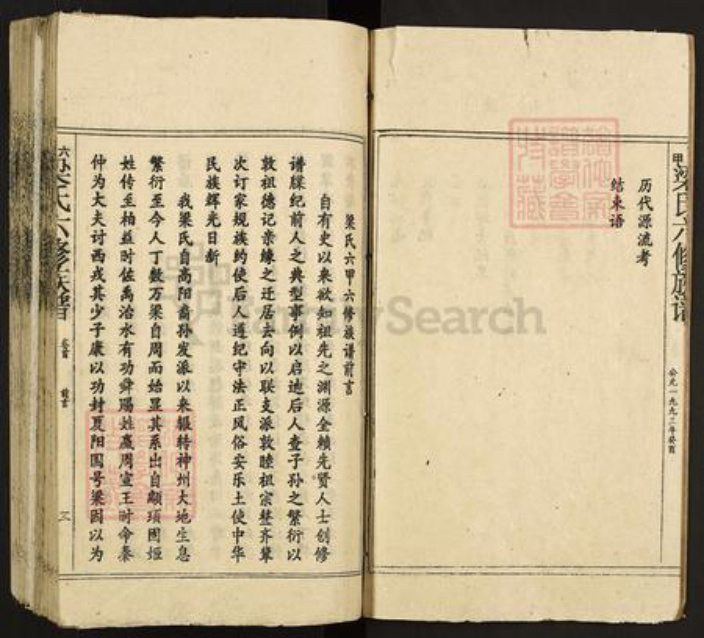 甲梁氏六修族谱
公元一九九三年癸酉
历代源流考
结束语
梁氏六甲六修族谱前言
自有史以来欲知祖先之渊源全赖先贤人士创修
谱牒纪前人之典型事例以启迪后人查子孙之繁衍以
敦祖德记亲缘之迁居去向以联支派敦睦祖宗整齐辈
次订家规族约使后人遵纪守法正风俗安乐土使中华
民族辉光日新
我梁氏自高阳裔孙发派以来辗转神州大地生息
繁衍至今人丁数万梁自周而始显其系出自颛顼因姬
姓传至柏益时佐禹治水有功舜赐姓嬴周宣王时命秦
仲为大夫讨西戎其少子康以功封夏阳国号梁因以为
梁氏六修族谱
卷首
前言
三
FamilySearch